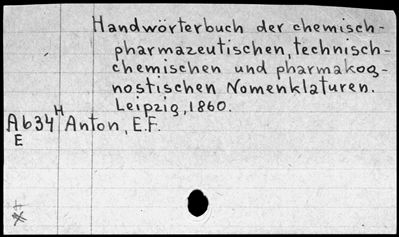 Handwörterbuch der chemisch-
pharmazeutischen, technisch-
chemischen und pharmakog-
nostischen Nomenklaturen.
Leipzig, 1860.
Ab34 H Anton, E.F.
E